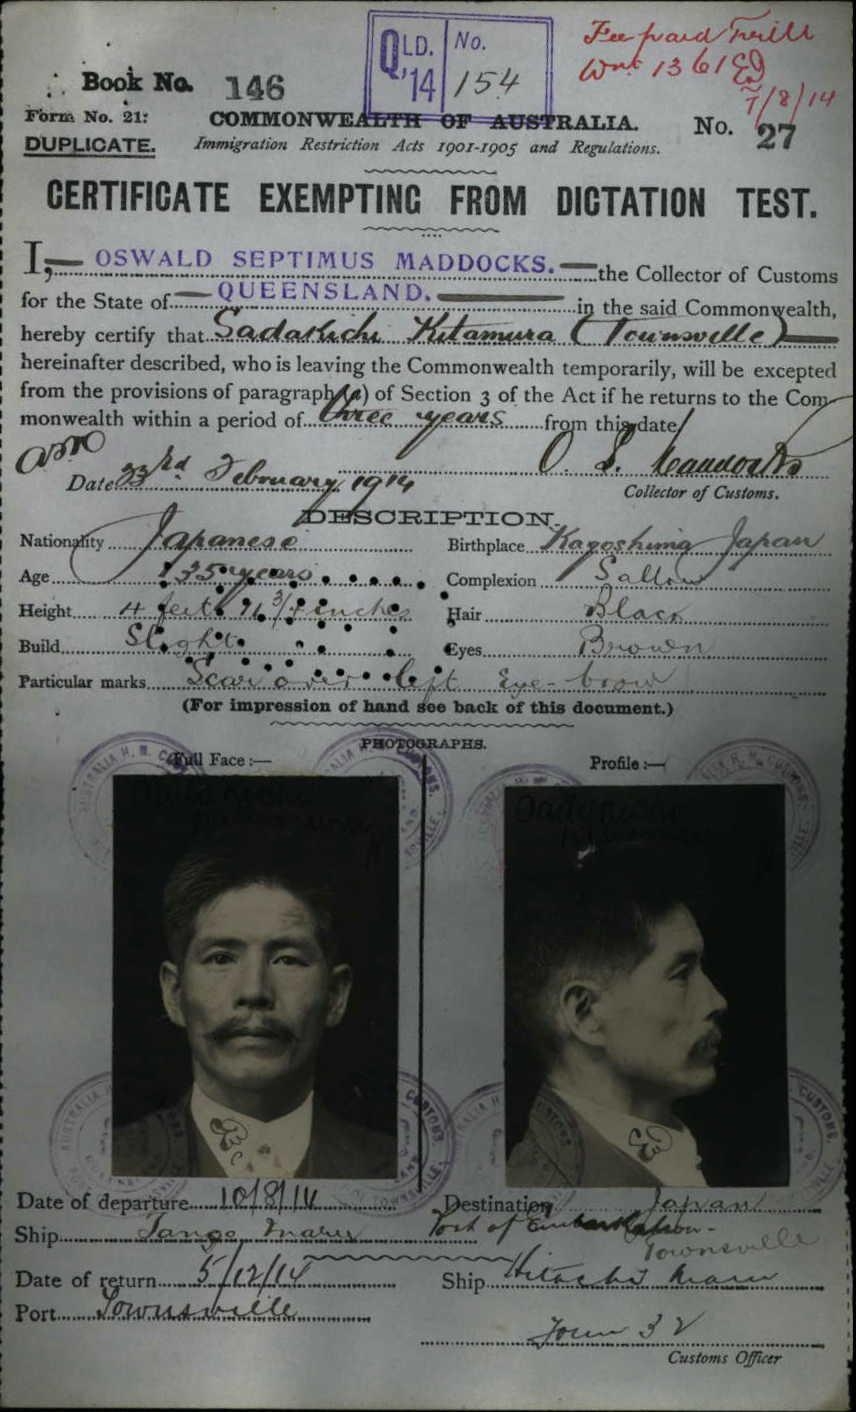 QLD. '14 No. 154
Fee paid T'ville
13 61
7/8/14
Book No. 146
Form No. 21:
COMMONWEALTH OF AUSTRALIA.
No. 27
DUPLICATE.
Immigration Restriction Acts 1901-1905 and Regulations.
CERTIFICATE EXEMPTING FROM DICTATION TEST.
I, OSWALD SEPTIMUS MADDOCKS. the Collector of Customs
for the State of QUEENSLAND. in the said Commonwealth,
hereby certify that Sadakichi Kitamura (Townsville)
hereinafter described, who is leaving the Commonwealth temporarily, will be excepted
from the provisions of paragraph (a) of Section 3 of the Act if he returns to the Com-
monwealth within a period of three years from this date
O. S. Maddocks
Date 23rd February 1914
Collector of Customs.
DESCRIPTION.
Nationality Japanese Birthplace Kagoshima Japan
Age 35 years Complexion Sallow
Height 4 feet 9¾ inches Hair Black
Build Slight Eyes Brown
Particular marks Scar over left Eye-brow
(For impression of hand see back of this document.)
PHOTOGRAPHS.
Full Face :— Profile :—
Date of departure 10/8/14 Destination Japan
Ship Tango Maru Port of Embarkation - Townsville
Date of return 5/12/14 Ship Hitachi Maru
Port Townsville
Customs Officer